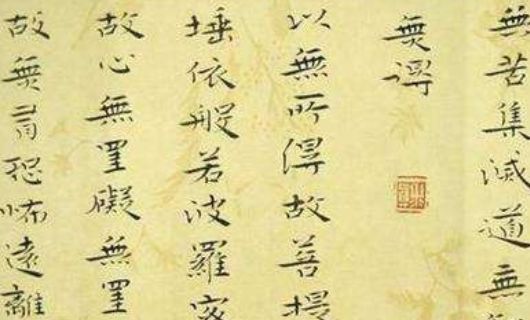 無苦集滅道無
無得
以無所得故菩提
埵依般若波羅
故心無罣礙無罣
故無有恐怖遠離